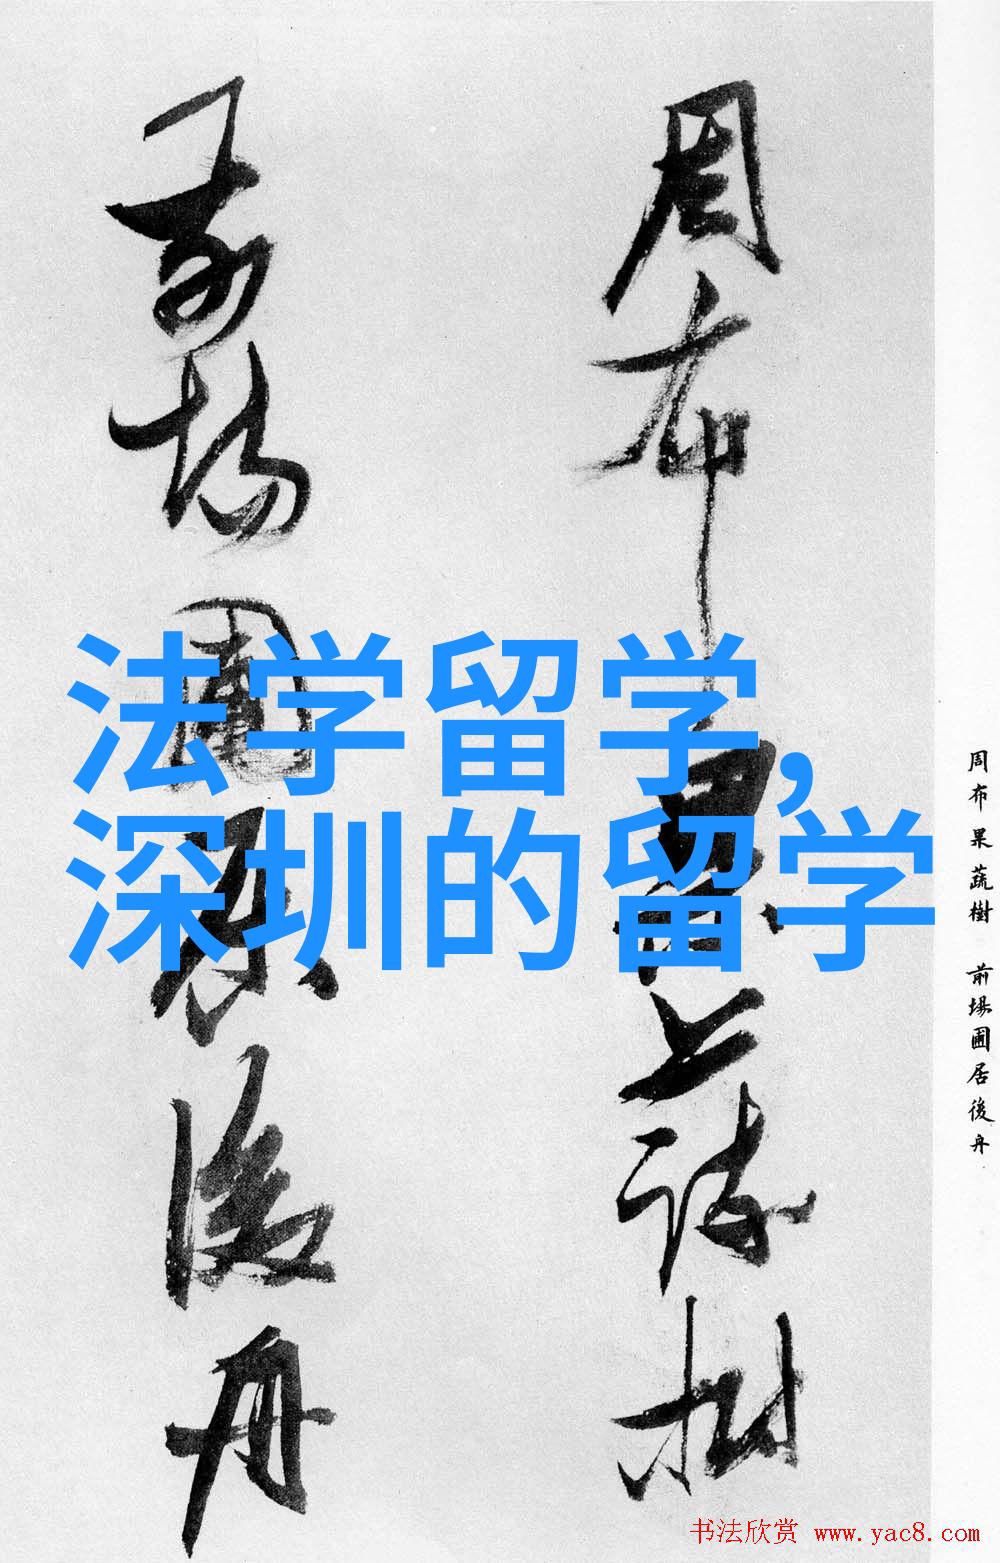 周布果蔬樹
前場圃居後舟
法学留学,
深圳的留学
周布果蔬樹 前場圃居後舟
书法欣赏 www.yac8.com